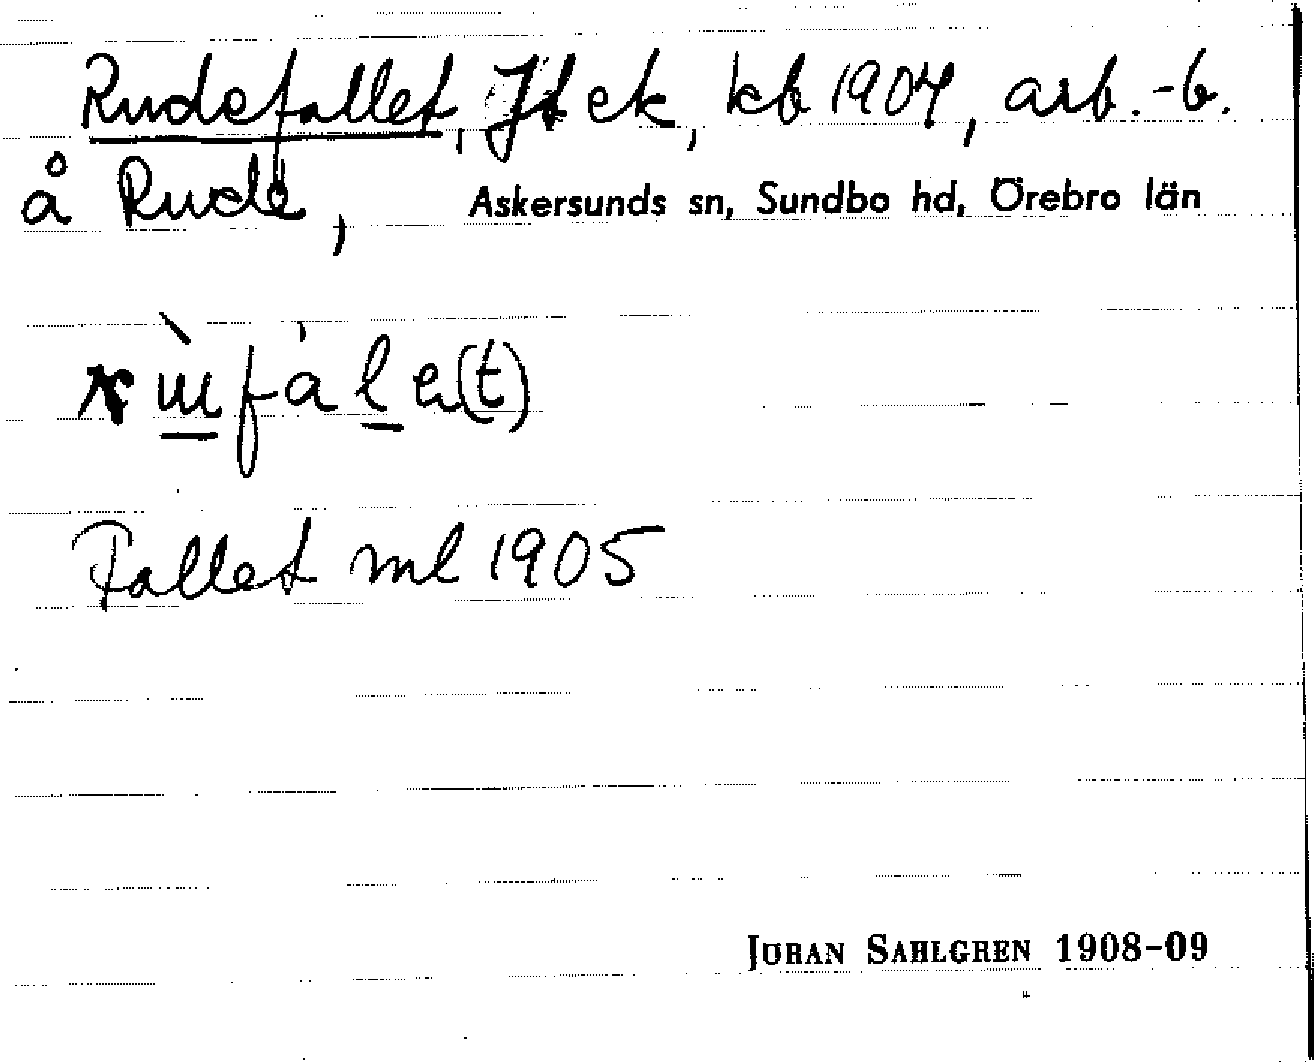 Rudefallet, Jt ek, kb 1907, arb.-b.
å Rude, Askersunds sn, Sundbo hd, Örebro län
Fallet ml 1905
JÖRAN SAHLGREN 1908-09